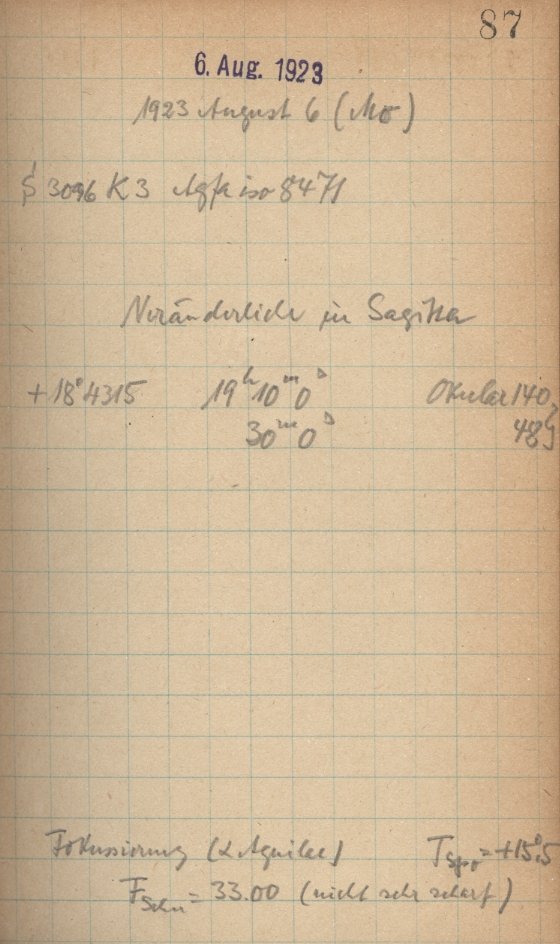 87
6. Aug. 1923
1923 August 6 (Mo)
S 3096 K 3 Agfa iso 8471
Veränderliche in Sagitta
+18°4315 19ʰ10ᵐ0ˢ Okular 140,
30ᵐ0ˢ 48,
Fokussierung (α Aquilae) T = +15°,5
F = 33.00 (nicht sehr scharf)